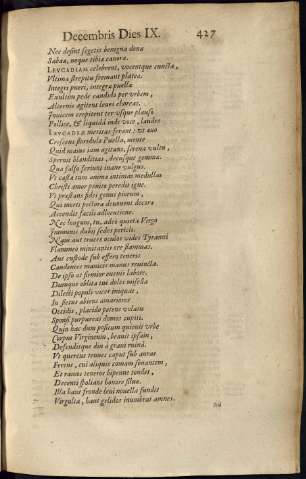 Decembris Dies IX. 427
Nec desint segetis benigna dona
Sabææ, neque tibiæ canoræ.
LEVCADIAM celebrent, vocentque cuncta,
Vltima strepitu sremant plateæ.
Integri pueri, integræ puellæ
Exultim pede candido per vrbem,
Alternis agitent leues choreas.
Iunicem crepitent ter vsque plausu
Pollice, & liquida inde voce, laudes
LEVCADIÆ meritas ferant: vt
Crescens floridula Puella, mente
Quid maius iam agitans, serena vultu,
Spernit blanditias, decusque gemmæ.
Quæ falso feriunt inane vulgus.
Vt casta tum anima intimas medullas
Christi amor penitu peredit igne.
Vt præstans fidei genus piorum,
Qui inerti pectora deuouent decora
Accendit facili adlocutione.
Nec longum, tu, ades quieta Virgo
Innumis dubij sedes pericli.
Nam aut truces oculos vides Tyranni
Flammeo minitantis ore flammas.
Aut custode sub effera teneris
Candentes manicis manus reuincta.
De ipso at firmior enenis labore,
Dumque oblita tui doles misella
Dilecti populi vicem iniquam,
In fletus abiens amariores
Occidis, placido petens volatu
Sponsi purpureas domos cupiti.
Quin hac dum posicum quieui vrbe
Corpus Virgineum, beauit ipsam,
Defenditque diu à graui ruina.
Vt quercus tenues caput sub auras
Ferens, cui aliquis comam sonantem,
Et ramos teneros bipenne tondet,
Decenti spolians honore siluæ.
Illa haut fronde leui nouella fundit
Virgulta, haut gelidos inumbrat amnes.